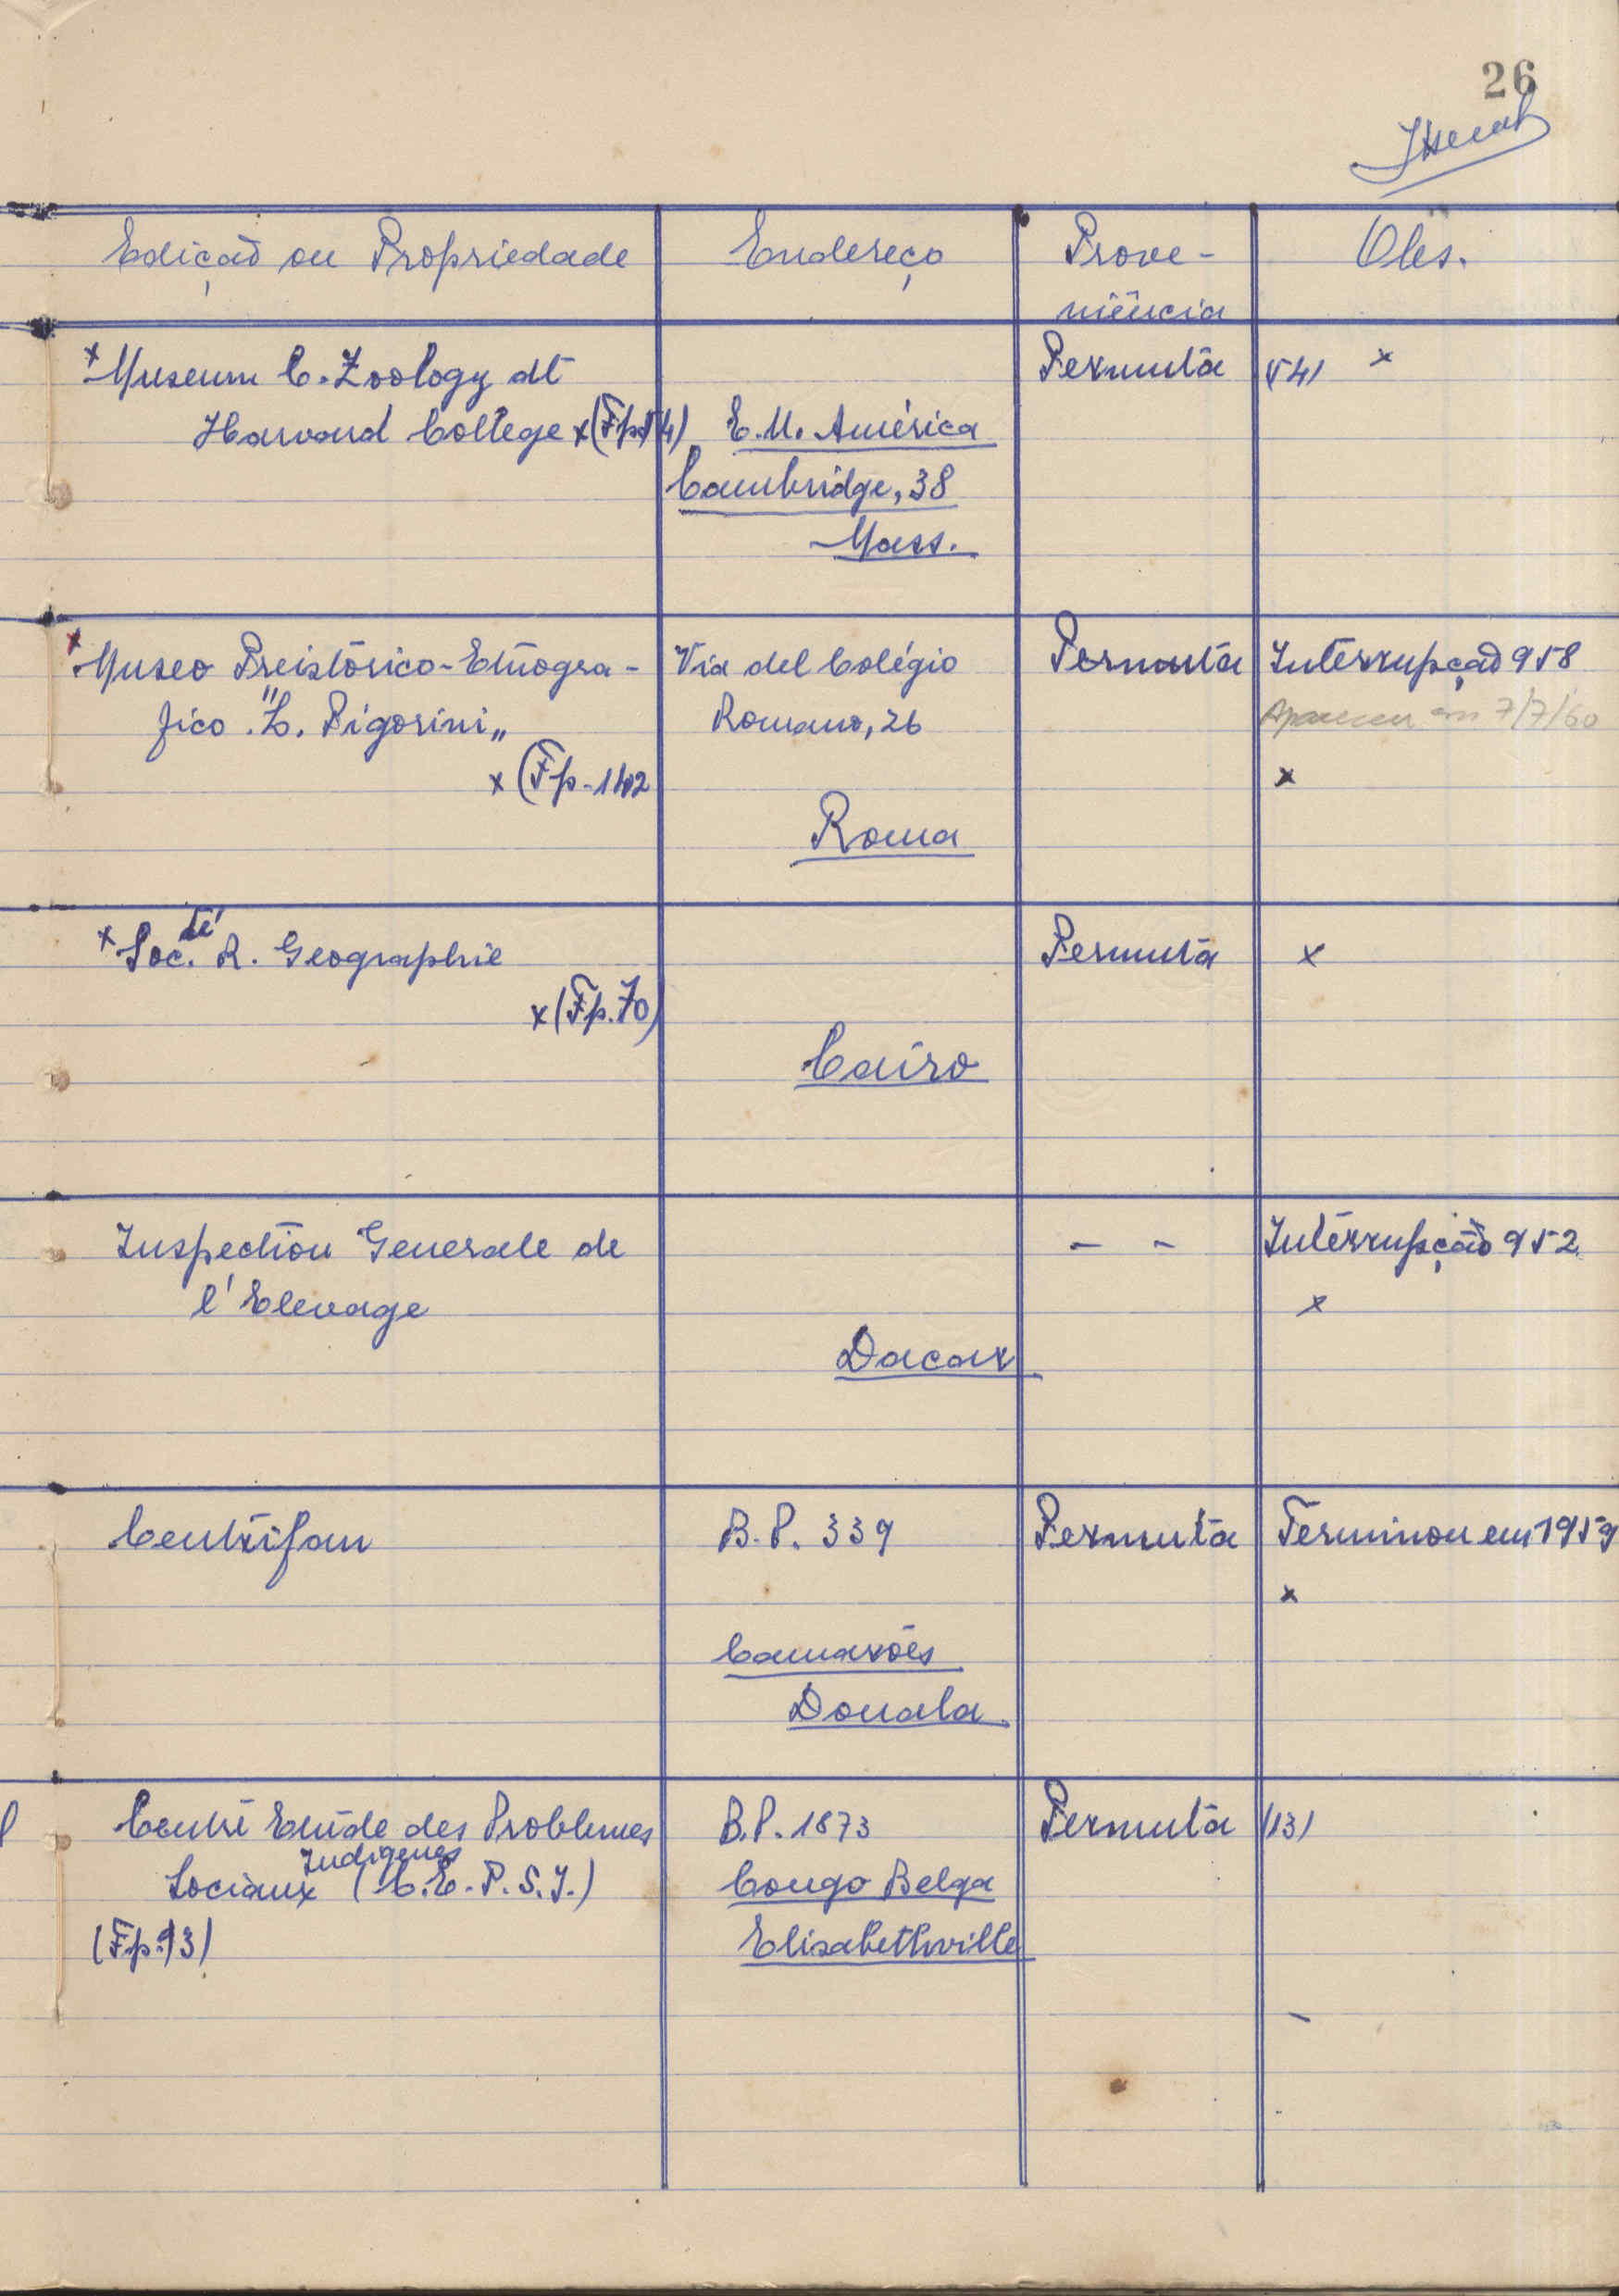 26
Edição ou Propriedade
Endereço
Prove-
niência
Obs.
x Museum C. Zoology at
Harvard College x (Fp. 54)
E. U. América
Cambridge, 38
Mass.
Permuta
(54) x
x Museo Preistórico-Etnogra-
fico "L. Pigorini"
x (Fp-142
Via del Colégio
Romano, 26
Roma
Permuta
Interrupção 958
Apareceu em 7/7/60
x
x Soc.té R. Geographie
x (Fp. 70)
Cairo
Permuta
x
Inspection Generale de
l'Elevage
Dacar
- -
Interrupção 952
x
Centrifan
B.P. 339
Camarões
Douala
Permuta
Terminou em 1959
x
Centre Etude des Problemes
Sociaux Indigenes (C.E.P.S.I.)
(Fp. 13)
B.P. 1873
Congo Belga
Elisabethville
Permuta
(13)
-